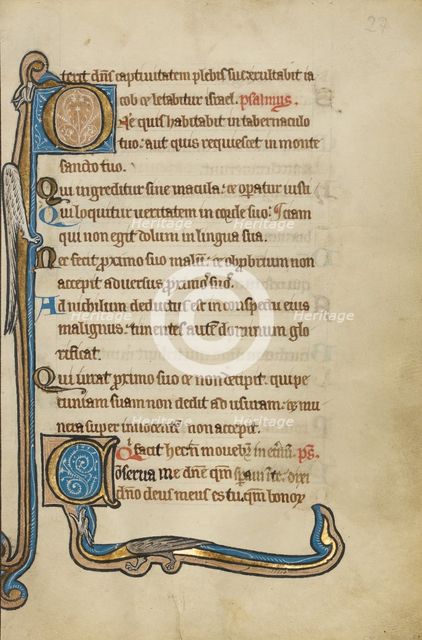 27
terit dñs captiuitatem plebis sue exultabit ia
cob & letabitur israel. psalmus.
Dñe quis habitabit in tabernaculo
tuo: aut quis requiescet in monte
sancto tuo.
Qui ingreditur sine macula: & operatur iusti
Qui loquitur ueritatem in corde suo:
qui non egit dolum in lingua sua.
Nec fecit proximo suo malũ: & obprbrium non
accepit aduersus proximos suos.
Ad nichilum deductus est in conspectu eius
malignus: timentes autẽ dominum glo
rificat.
Qui iurat proximo suo & non decipit: qui pe
cuniam suam non dedit ad usuram: & mu
nera super innocentẽ non accepit.
Qi facit hec nõ mouebit̃ in et̃nũ. ps.
Conserua me dñe qm̃ speraui ĩ te: dixi
dño deus meus es tu: qm̃ bonor
Heritage
Heritage
Heritage
Heritage
Heritage
Heritage
Heritage